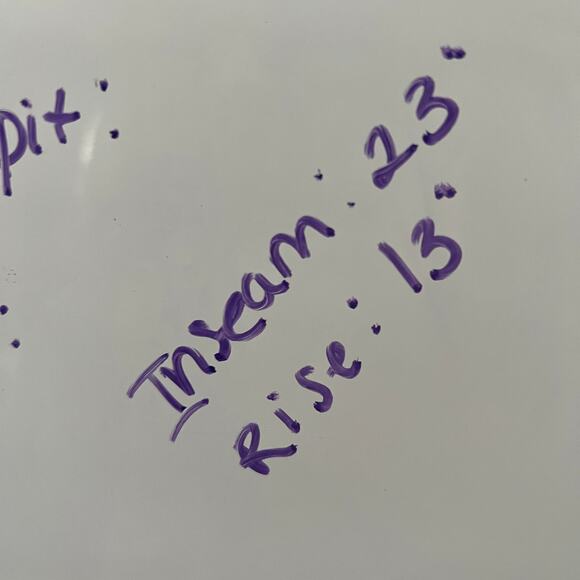 pit:
Inseam: 23"
Rise: 13"